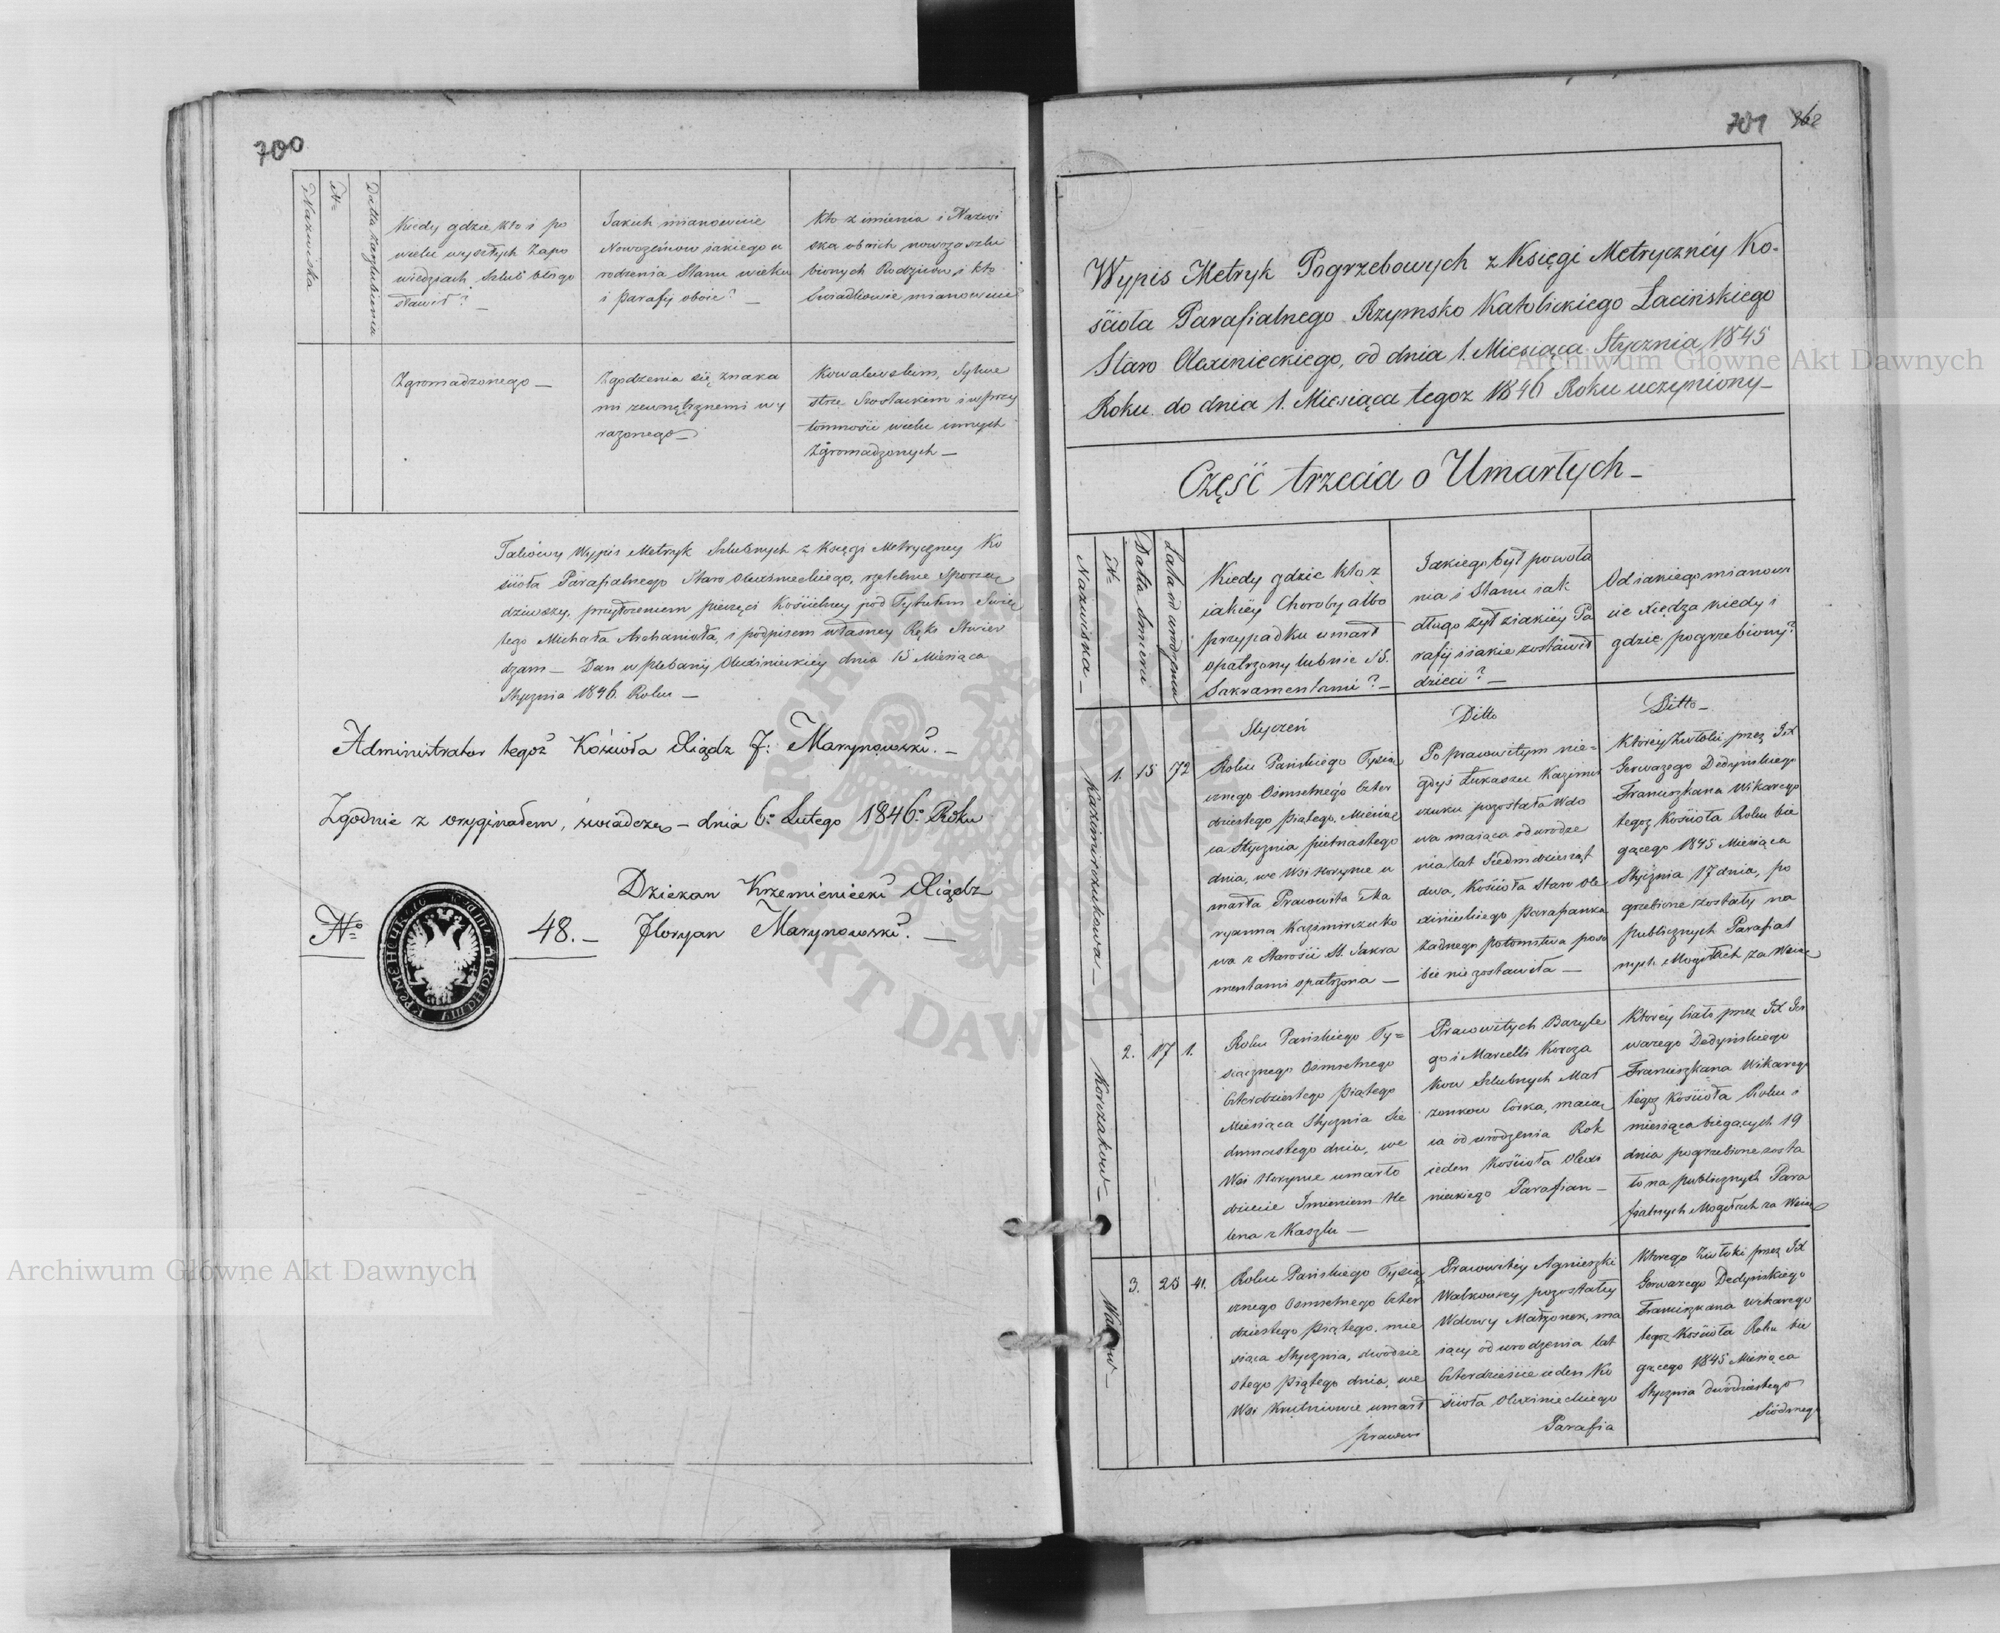 700
Nazwiska
N=
Datta Zaszlubienia
Kiedy gdzie kto i po
wielu wyszłych Zapo
wiedziach szlub błogo
sławił? —
Jakich mianowicie
Nowożeńcow jakiego u
rodzenia Stanu wieku
i Parafij oboie? —
Kto z imienia i Nazwi
ska oboich nowozaszlu
bionych Rodziców i kto
Swiadkowie mianowicie
Zgromadzonego —
Zgodzenia się znaka
mi zewnętrznemi wy
rażonego —
Kowalewskim, Sylwe
strze Szostackim i w przy
tomności wielu innych
Zgromadzonych —
Takowy Wypis Metryk Szlubnych z Księgi Metryczney Ko
ścioła Parafialnego Staro Olexinieckiego, rzetelnie Sporzą
dziwszy, przyłożeniem pieczęci Kościelney pod Tytułem Swię
tego Michała Archanioła, i podpisem własney Ręki Stwier
dzam — Dan w Plebanij Olexinieckiéy dnia 15 Miesiąca
Stycznia 1846. Roku —
Administrator tegoż Kościoła Xiądz F: Marynowski. —
Zgodnie z oryginałem, świadczę — dnia 6º Lutego 1846º Roku
Dziekan Krzemieniecki Xiądz
Nº 48. — Floryan Marynowski. —
701 362
Wypis Metryk Pogrzebowych z Księgi Metrycznéy Ko-
ścioła Parafialnego Rzymsko Katolickiego Łacińskiego
Staro Olexinieckiego, od dnia 1. Miesiąca Stycznia 1845
Roku do dnia 1. Miesiąca tegoż 1846 Roku uczyniony —
Część trzecia o Umarłych —
Nazwiska —
N=
Datta Smierci
Lata od urodzenia
Kiedy gdzie kto z
iakiéy Choroby albo
przypadku umarł
opatrzony lub nie SS.
Sakramentami? —
Jakiego był powoła
nia i Stanu iak
długo żył z iakiéy Pa
rafij i iakie zostawił
dzieci? —
Od iakiego mianowi
cie Xiędza kiedy i
gdzie pogrzebiony?
Kazimirczukowa —
1. 15 72
Styczeń
Roku Pańskiego Tysią
cznego Osmsetnego Czter
dziestego Piątego, Miesią
ca Stycznia pietnastego
dnia, we Wsi Horynce u
marła Prawowita Ma
ryanna Kazimirczuko
wa z Starości SS. Sakra
mentami opatrzona —
Ditto
Po prawowitym nie=
gdyś Łukaszu Kazimir
czuku pozostała Wdo
wa maiąca od urodze
nia lat Siedmdziesiąt
dwa, Kościoła Staro Ole
xinieckiego Parafianka
żadnego potomstwa po so
bie nie zostawiła —
Ditto —
Któréy Zwłoki przez JX
Gerwazego Dedyńskiego
Franciszkana Wikarego
tegoż Kościoła Roku bie
gącego 1845 Miesiąca
Stycznia 17 dnia, po
grzebione zostały na
publicznych Parafial
nych Mogiłach za Wsią
Korczakow —
2. 17 1.
Roku Pańskiego Ty=
siącznego Osmsetnego
Czterdziestego Piątego
Miesiąca Stycznia Sie
dmnastego dnia, we
Wsi Horynce umarło
dziecie Imieniem He
lena z Kaszlu —
Prawowitych Bazyle
go i Marcelli Korcza
kow Szlubnych Mał
żonkow Córka, maiąc
ca od urodzenia Rok
ieden Kościoła Olexi
nieckiego Parafian —
Któréy Ciało przez JX Ger
wazego Dedyńskiego
Franciszkana Wikarego
tegoż Kościoła Roku i
miesiąca biegących 19
dnia pogrzebione zosta
ło na publicznych Para
fialnych Mogiłach za Wsią
3. 25 41.
Roku Pańskiego Tysią
cznego Osmsetnego Czter
dziestego Piątego, mie
siąca Stycznia, dwódzie
stego Piątego dnia, we
Wsi Krutniowie umarł
prawow
Prawowitey Agnieszki
Walkowey pozostałey
Wdowy Małżonek, ma
iący od urodzenia lat
Czterdzieście ieden Ko
ścioła Olexinieckiego
Parafia
Ktorego Zwłoki przez JX
Gerwazego Dedyńskiego
Franciszkana Wikarego
tegoż Kościoła Roku bie
gącego 1845 Miesiąca
Stycznia dwodziestego
Siódmego
Archiwum Główne Akt Dawnych
Archiwum Główne Akt Dawnych